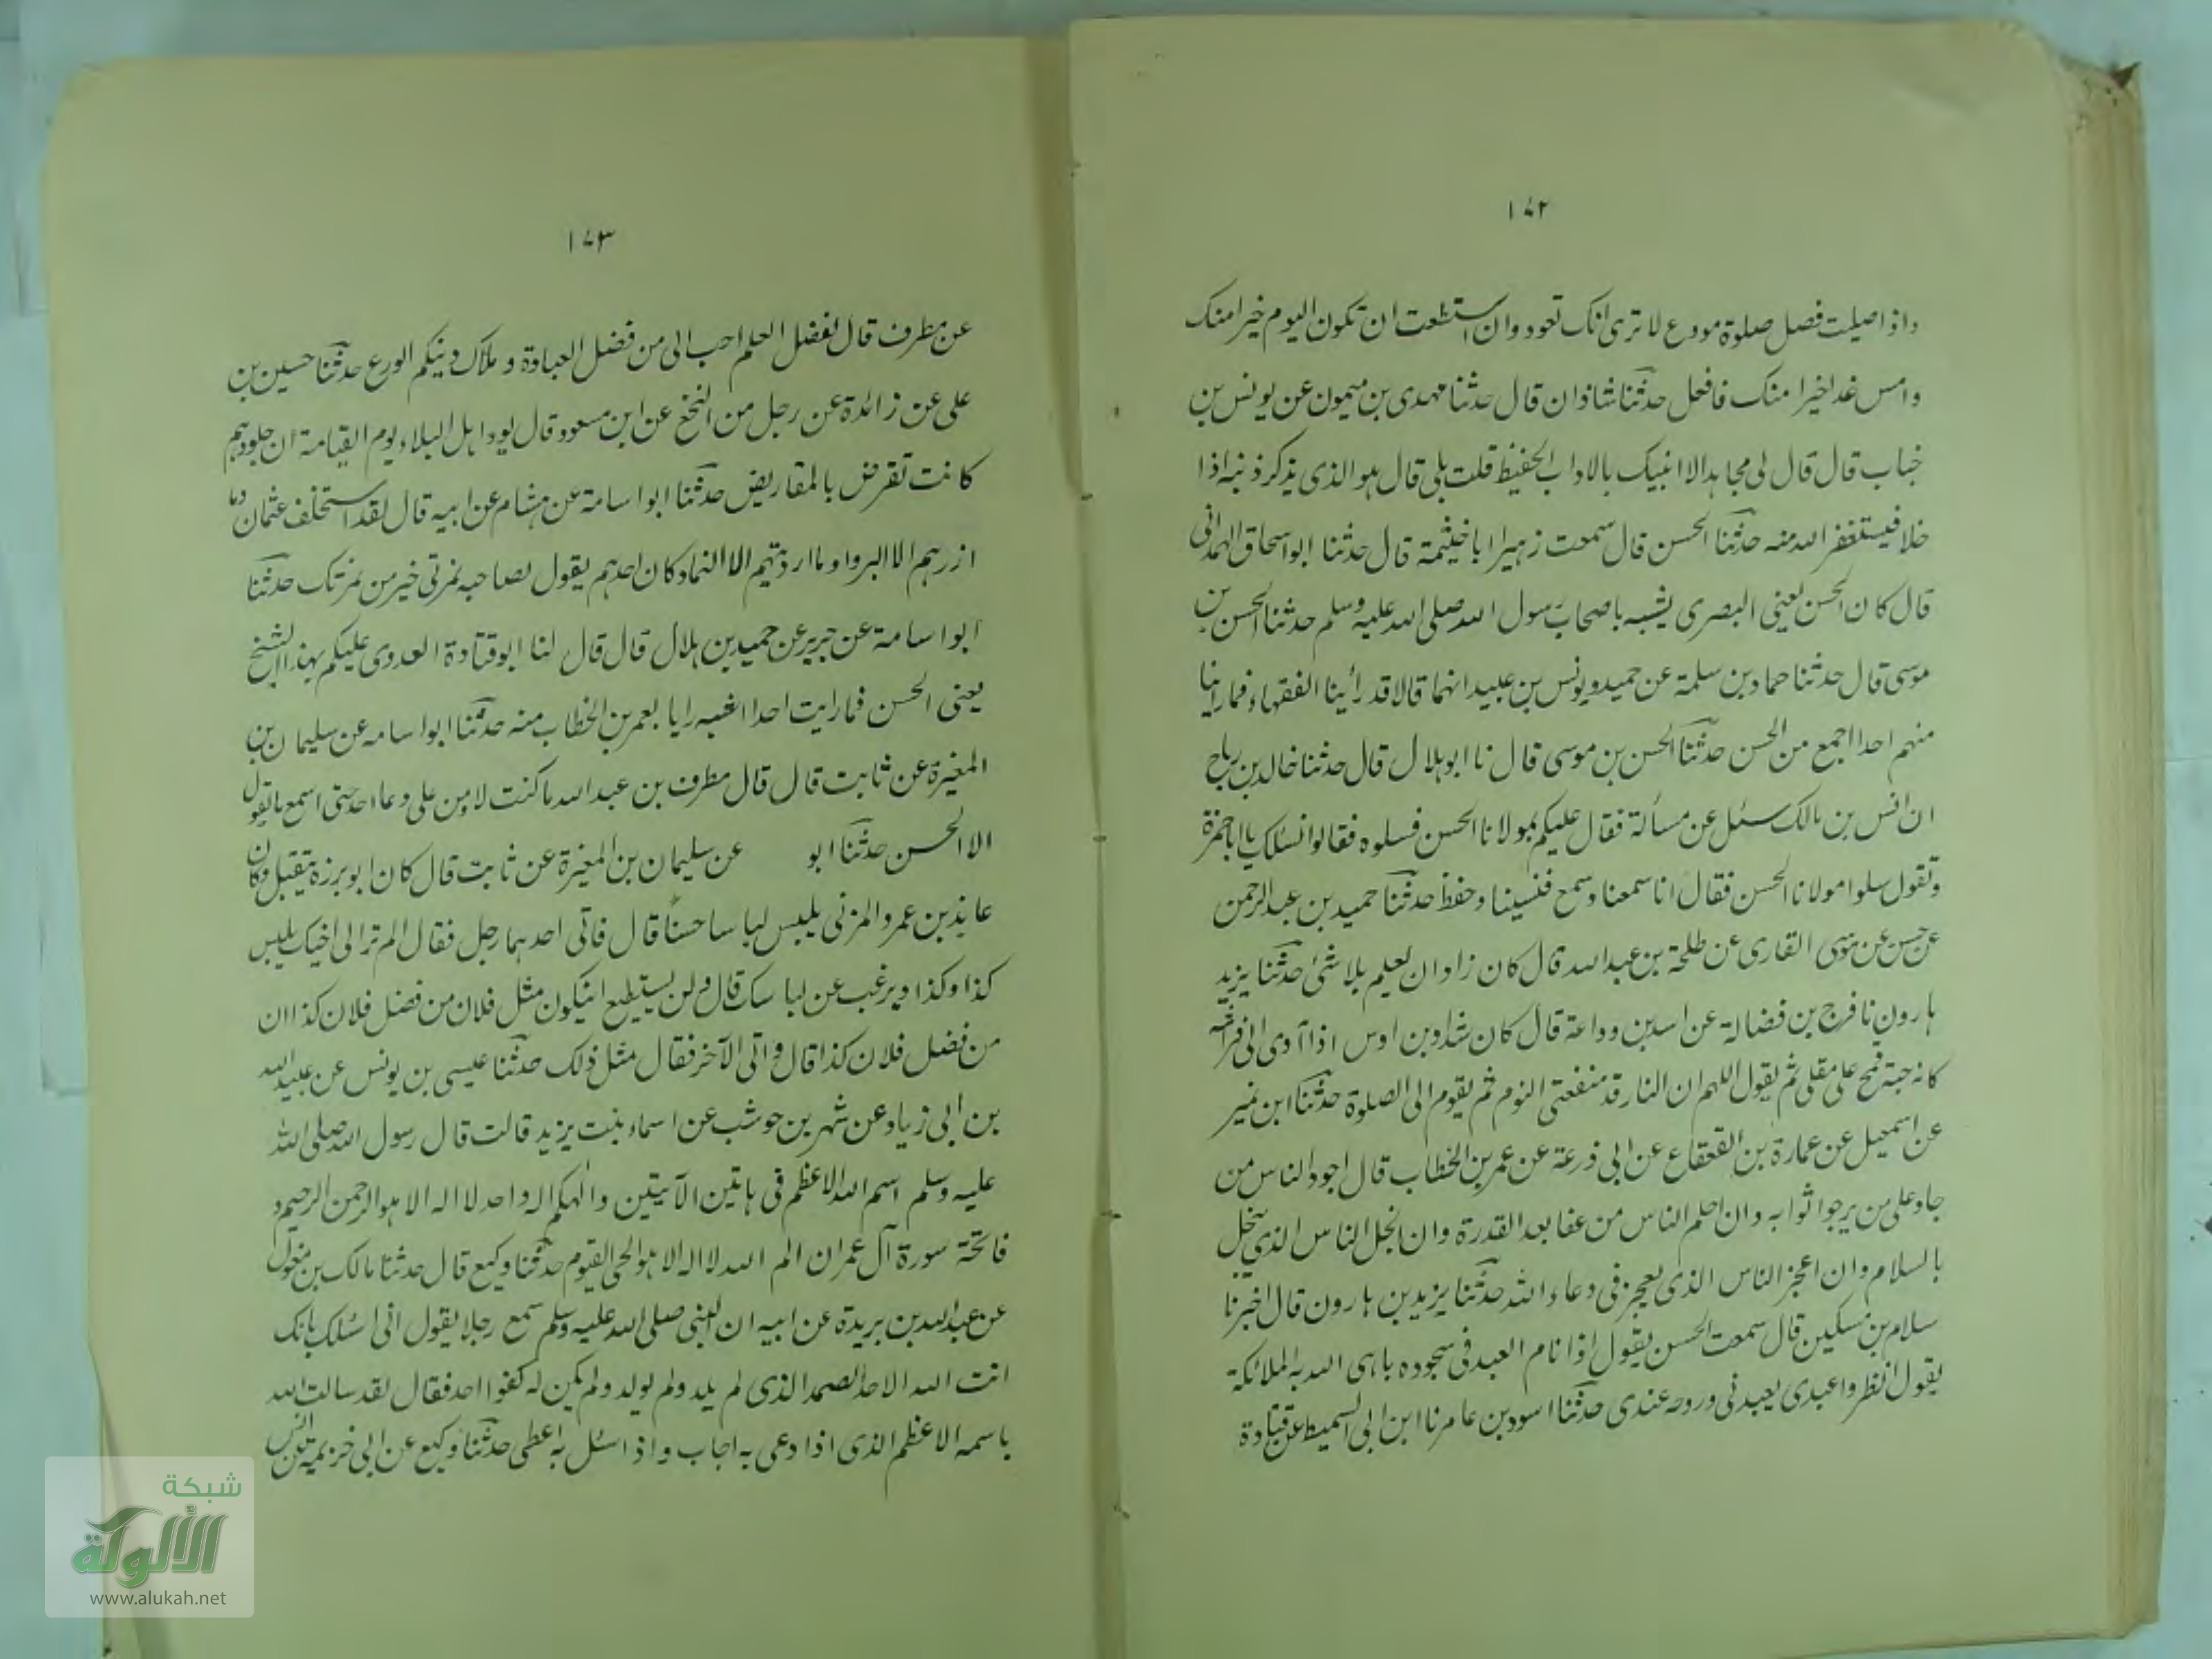 ١٧٢
واذا صليت فصل صلوة مودع لا ترى انك تعود وان استطعت ان تكون اليوم خيرا منك
وامس غدا خيرا منك فافعل حدثنا شاذان قال حدثنا مهدى بن ميمون عن يونس بن
خباب قال قال لى مجاهد الا انبيك بالاواب الحفيظ قلت بلى قال هو الذى يذكر ذنبه اذا
خلا فيستغفر الله منه حدثنا الحسن قال سمعت زهيرا ابا خيثمة قال حدثنا ابو اسحاق الهمدانى
قال كان الحسن يعنى البصرى يشبه باصحاب رسول الله صلى الله عليه وسلم حدثنا الحسن بن
موسى قال حدثنا حماد بن سلمة عن حميد ويونس بن عبيد انهما قالا قد رأينا الفقهاء فما راينا
منهم احدا اجمع من الحسن حدثنا الحسن بن موسى قال نا ابو هلال قال حدثنا خالد بن رباح
ان انس بن مالك سئل عن مسألة فقال عليكم بمولانا الحسن فسلوه فقالوا نسئلك يا ابا حمزة
وتقول سلوا مولانا الحسن فقال انا سمعنا وسمع فنسينا وحفظ حدثنا حميد بن عبد الرحمن
عن حسن عن موسى القارى عن طلحة بن عبد الله قال كان زاذان يعلم بلا شئ حدثنا يزيد
هارون نا فرج بن فضالة عن اسد بن وداعة قال كان شداد بن اوس اذا آوى الى فراشه
كانه حبة قمح على مقلى ثم يقول اللهم ان النار قد منعتنى النوم ثم يقوم الى الصلوة حدثنا ابن نمير
عن اسمعيل عن عمارة بن القعقاع عن ابى زرعة عن عمر بن الخطاب قال اجود الناس من
جاد على من يرجو اثوابه وان احلم الناس من عفا بعد القدرة وان انجل الناس الذى يبخل
بالسلام وان اعجز الناس الذى يعجز فى دعاء الله حدثنا يزيد بن هارون قال اخبرنا
سلام بن مسكين قال سمعت الحسن يقول اذا نام العبد فى سجوده باهى الله به الملائكة
يقول انظروا عبدى يعبدنى وروحه عندى حدثنا اسود بن عامر نا ابن ابى السميط عن قتادة
١٧٣
عن مطرف قال لفضل العلم احب الى من فضل العبادة وملاك دينكم الورع حدثنا حسين بن
على عن زائدة عن رجل من النخع عن ابن مسعود قال يود اهل البلاء يوم القيامة ان جلودهم
كانت تقرض بالمقاريض حدثنا ابو اسامة عن هشام عن ابيه قال لقد استخلف عثمان وما
ازرهم الا البرود وما ارديتهم الا النماد كان احدهم يقول لصاحبه نمرتى خير من نمرتك حدثنا
ابو اسامة عن جرير عن حميد بن هلال قال قال لنا ابو قتادة العدوى عليكم بهذا الشيخ
يعنى الحسن فما رايت احدا اشبه رايا بعمر بن الخطاب منه حدثنا ابو اسامه عن سليمان بن
المغيرة عن ثابت قال قال مطرف بن عبد الله ما كنت لاومن على دعاء احد حتى اسمع ما يقول
الا الحسن حدثنا ابو عن سليمان بن المغيرة عن ثابت قال كان ابو برزة يتقبل وكان
عايذ بن عمرو المزنى يلبس لباسا حسنا قال فاتى احدهما رجل فقال الم تر الى اخيك يلبس
كذا وكذا ويرغب عن لباسك قال ولن يستطيع ان يكون مثل فلان من فضل فلان كذا ان
من فضل فلان كذا قال واتى الآخر فقال مثل ذلك حدثنا عيسى بن يونس عن عبيد الله
بن ابى زياد عن شهر بن حوشب عن اسماء بنت يزيد قالت قال رسول الله صلى الله
عليه وسلم اسم الله الاعظم فى هاتين الآيتين والهكم اله واحد لا اله الا هو الرحمن الرحيم و
فاتحة سورة آل عمران الم الله لا اله الا هو الحى القيوم حدثنا وكيع قال حدثنا مالك بن مغول
عن عبد الله بن بريدة عن ابيه ان النبى صلى الله عليه وسلم سمع رجلا يقول انى اسئلك بانك
انت الله الاحد الصمد الذى لم يلد ولم يولد ولم يكن له كفوا احد فقال لقد سالت الله
باسمه الاعظم الذى اذا دعى به اجاب واذا سئل به اعطى حدثنا وكيع عن ابى خزيمة عن انس
شبكة
الألوكة
www.alukah.net